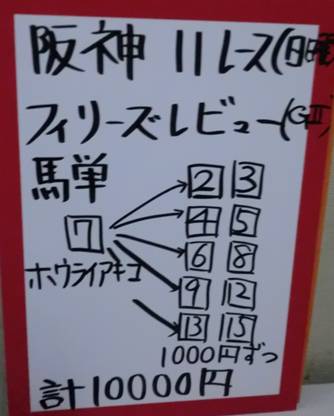 阪神 11レース(日曜)
フィリーズレビュー(GⅡ)
馬単
2 3
4 5
7
6 8
ホウライアキコ
9 12
13 15
1000円ずつ
計10000円